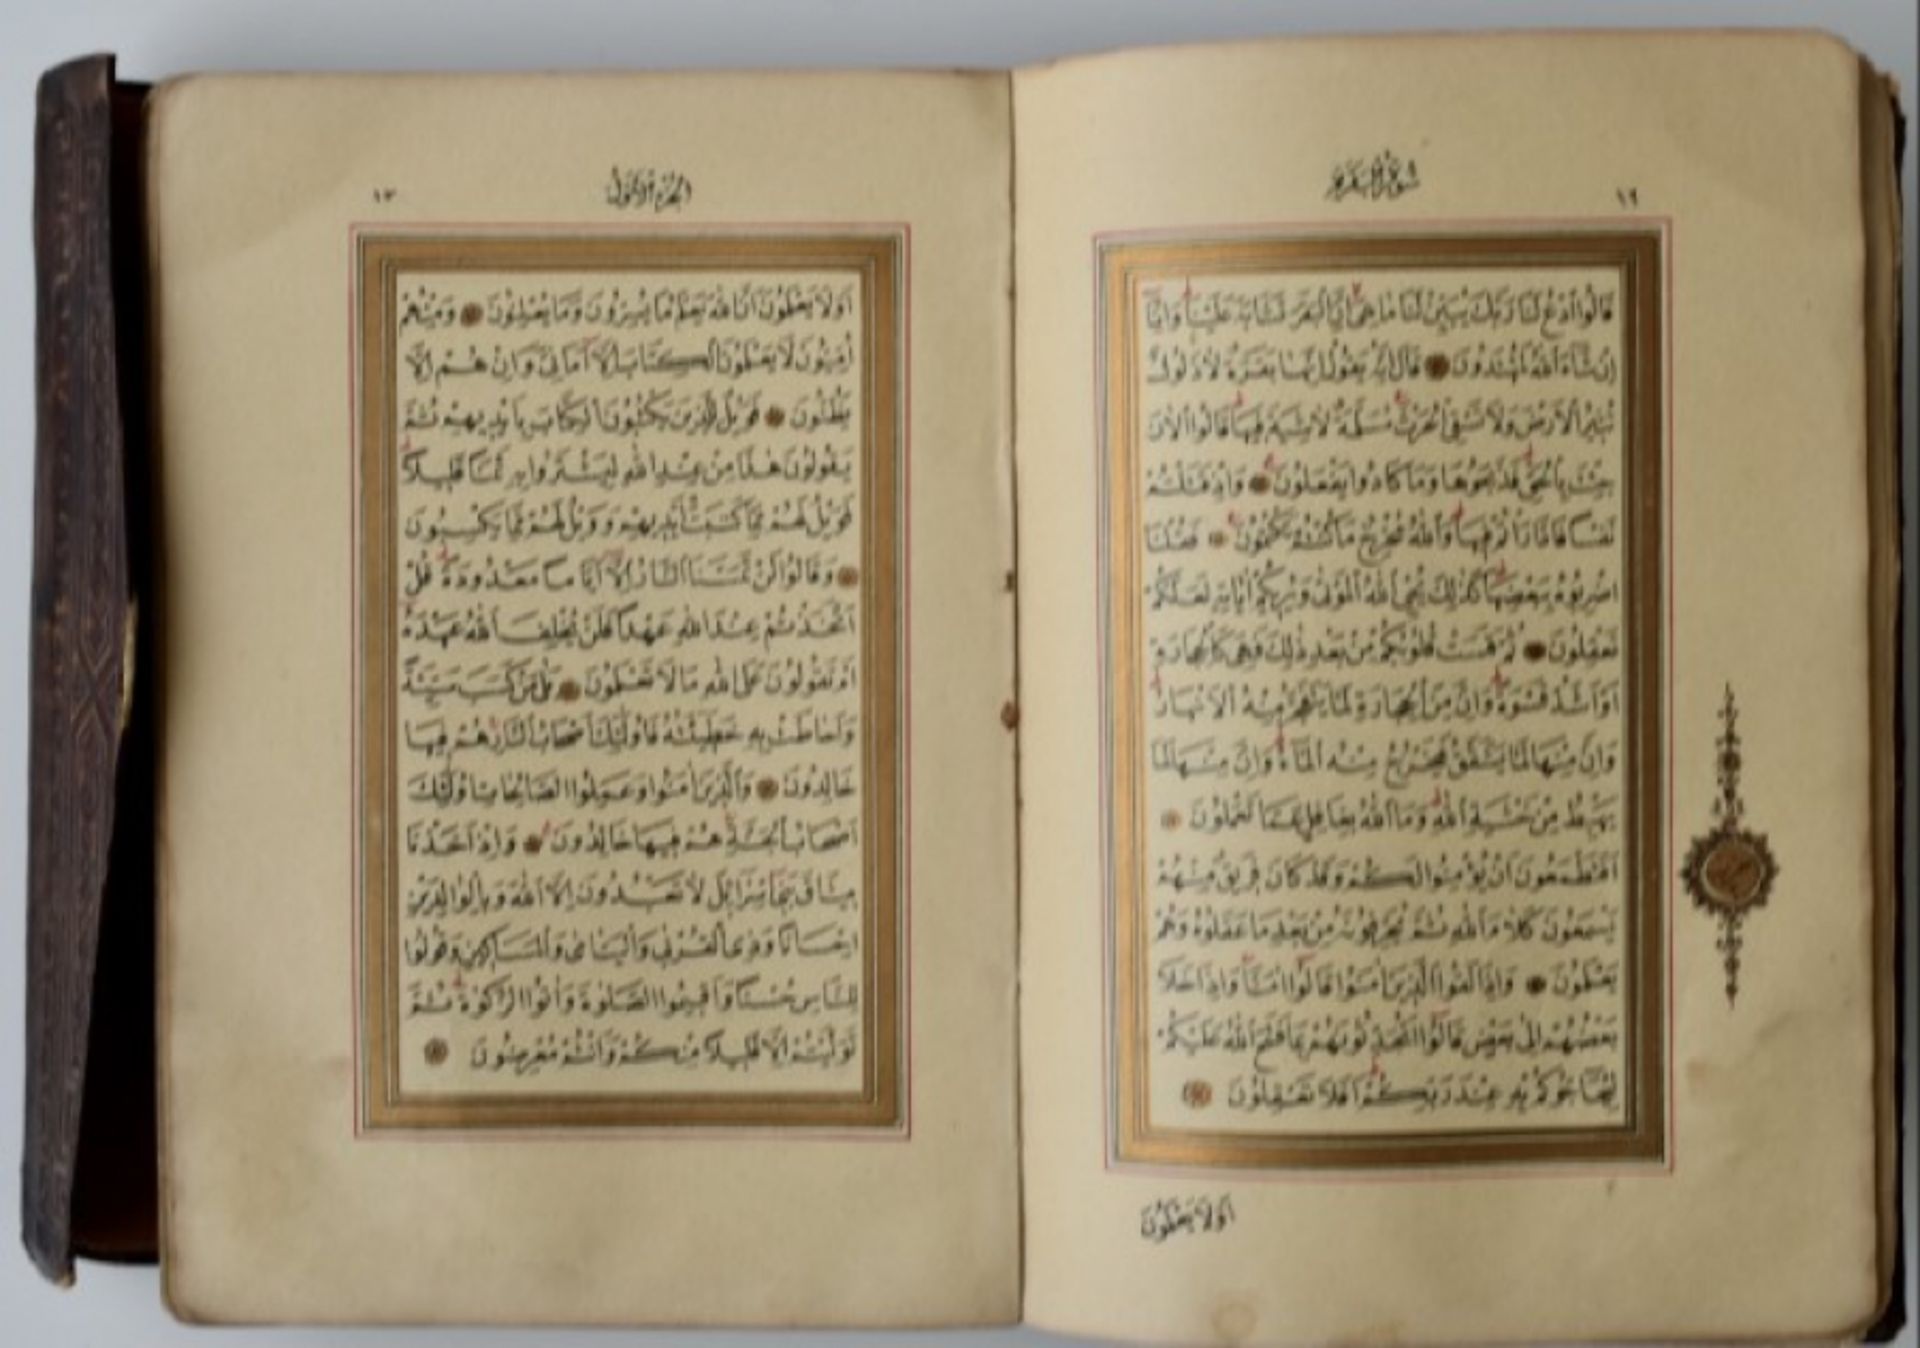 سورة البقرة
١٢
قالوا ادع لنا ربك يبين لنا ما هي ان البقر تشابه علينا وانا
ان شاء الله لمهتدون قال انه يقول انها بقرة لا ذلول
تثير الارض ولا تسقي الحرث مسلمة لا شية فيها قالوا الان
جئت بالحق فذبحوها وما كادوا يفعلون واذ قتلتم
نفسا فادارأتم فيها والله مخرج ما كنتم تكتمون فقلنا
اضربوه ببعضها كذلك يحيي الله الموتى ويريكم اياته لعلكم
تعقلون ثم قست قلوبكم من بعد ذلك فهي كالحجارة
او اشد قسوة وان من الحجارة لما يتفجر منه الانهار
وان منها لما يشقق فيخرج منه الماء وان منها لما
يهبط من خشية الله وما الله بغافل عما تعملون
افتطمعون ان يؤمنوا لكم وقد كان فريق منهم
يسمعون كلام الله ثم يحرفونه من بعد ما عقلوه وهم
يعلمون واذا لقوا الذين امنوا قالوا امنا واذا خلا
بعضهم الى بعض قالوا اتحدثونهم بما فتح الله عليكم
ليحاجوكم به عند ربكم افلا تعقلون
اولا يعلمون
الجزء الاول
١٣
اولا يعلمون ان الله يعلم ما يسرون وما يعلنون ومنهم
اميون لا يعلمون الكتاب الا اماني وان هم الا
يظنون فويل للذين يكتبون الكتاب بايديهم ثم
يقولون هذا من عند الله ليشتروا به ثمنا قليلا
فويل لهم مما كتبت ايديهم وويل لهم مما يكسبون
وقالوا لن تمسنا النار الا اياما معدودة قل
اتخذتم عند الله عهدا فلن يخلف الله عهده
ام تقولون على الله ما لا تعلمون بلى من كسب سيئة
واحاطت به خطيئته فاولئك اصحاب النار هم فيها
خالدون والذين امنوا وعملوا الصالحات اولئك
اصحاب الجنة هم فيها خالدون واذ اخذنا
ميثاق بني اسرائل لا تعبدون الا الله وبالوالدين
احسانا وذي القربى واليتامى والمساكين وقولوا
للناس حسنا واقيموا الصلوة واتوا الزكوة ثم
توليتم الا قليلا منكم وانتم معرضون